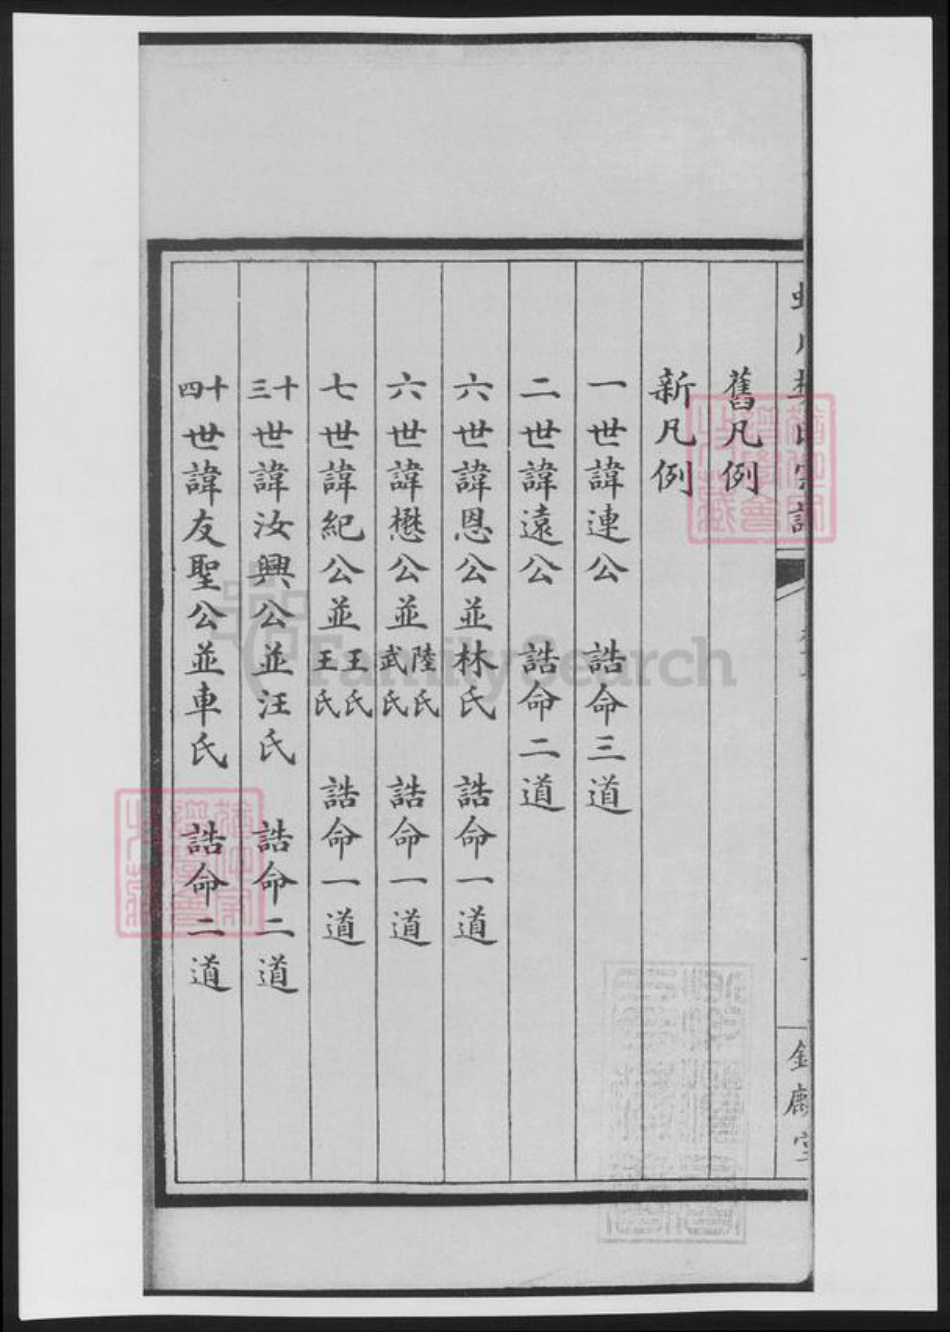 舊凡例
新凡例
一世諱連公 誥命三道
二世諱遠公 誥命二道
六世諱恩公並林氏 誥命一道
六世諱懋公並陸氏武氏 誥命一道
七世諱紀公並王氏王氏 誥命一道
十三世諱汝興公並汪氏 誥命二道
十四世諱友聖公並車氏 誥命二道
FamilySearch